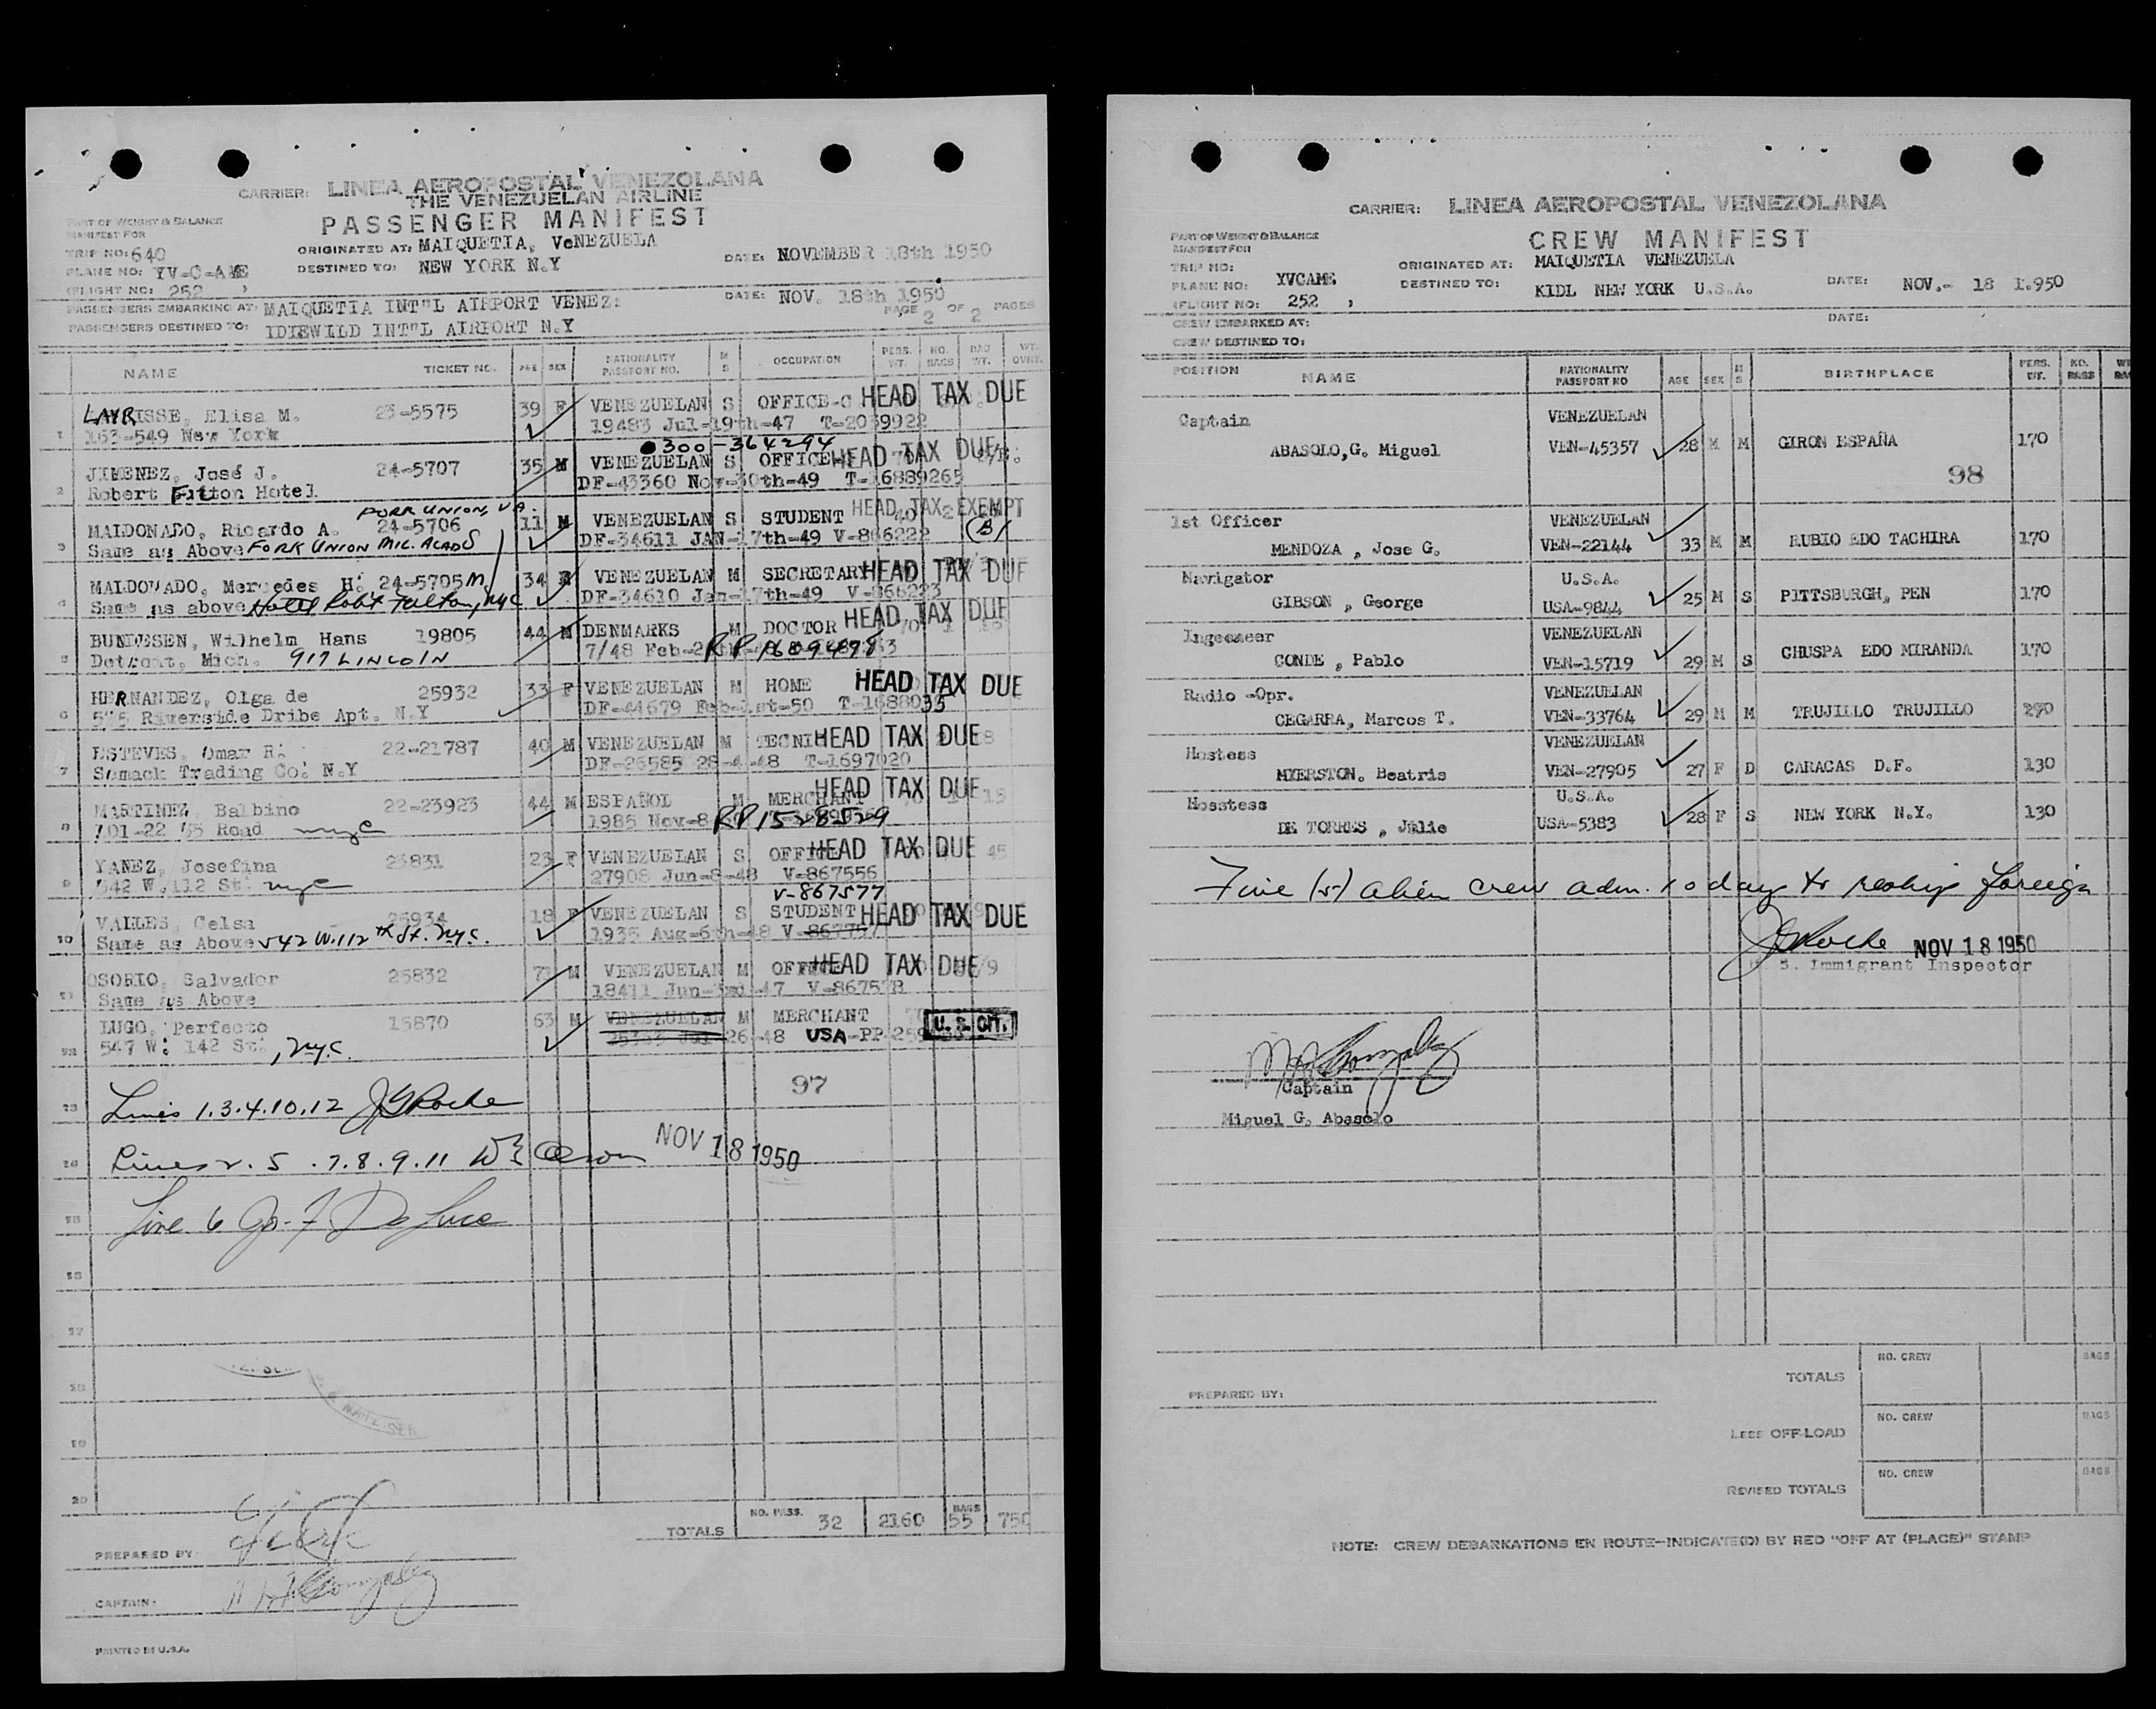 CARRIER: LINEA AEROPOSTAL VENEZOLANA
THE VENEZUELAN AIRLINE
PASSENGER MANIFEST
PART OF WEIGHT & BALANCE
MANIFEST FOR
TRIP NO: 640
ORIGINATED AT: MAIQUETIA, VeNEZUELA
DATE: NOVEMBER 18th 1950
PLANE NO: YV-C-AME
DESTINED TO: NEW YORK N.Y
(FLIGHT NO: 252 )
PASSENGERS EMBARKING AT: MAIQUETIA INT"L AIRPORT VENEZ:
DATE: NOV. 18th 1950
PAGE 2 OF 2 PAGES
PASSENGERS DESTINED TO: IDIEWILD INT"L AIRPORT N.Y
NAME TICKET NO. AGE SEX NATIONALITY PASSPORT NO. M S OCCUPATION PERS. WT. NO. BAGS BAG WT. WT. OVRT.
1 LAYRISSE, Elisa M. 23-5575 39 F VENEZUELAN S OFFICE-C HEAD TAX DUE
163-549 New York 19483 Jul-19th-47 T-2039922
0300-364294
2 JIMENEZ, José J. 24-5707 35 M VENEZUELAN S OFFICE HEAD TAX DUE
Robert Fulton Hotel DF-43360 Nov-30th-49 T-16889265
FORK UNION, VA.
3 MALDONADO, Ricardo A. 24-5706 11 M VENEZUELAN S STUDENT HEAD TAX EXEMPT
Same as Above FORK UNION MIL. ACAD DF-34611 JAN-17th-49 V-866222 (B)
4 MALDONADO, Mercedes H: 24-5705 34 F VENEZUELAN M SECRETARY HEAD TAX DUE
Same as above Hotel Rob't Fulton, NYC DF-34610 Jan-17th-49 V-866223
5 BUNDESEN, Wilhelm Hans 19805 44 M DENMARKS M DOCTOR HEAD TAX DUE
Detroit, Mich. 917 LINCOLN 7/48 Feb-2 RP 1689498
6 HERNANDEZ, Olga de 25932 33 F VENEZUELAN M HOME HEAD TAX DUE
575 Riverside Dribe Apt. N.Y DF-44679 Feb-1st-50 T-1688035
7 ESTEVES, Omar R: 22-21787 40 M VENEZUELAN M TECNI HEAD TAX DUE
Sumack Trading Co: N.Y DF-26585 28-4-48 T-1697020
8 MARTINEZ, Balbino 22-23923 44 M ESPAÑOL M MERCHANT HEAD TAX DUE
101-22 35 Road nyc 1985 Nov-8 RP 1528529
9 YANEZ, Josefina 25831 23 F VENEZUELAN S OFFICE HEAD TAX DUE
542 W.112 St. nyc 27908 Jun-8-48 V-867556
V-867577
10 VALLES, Celsa 25934 18 F VENEZUELAN S STUDENT HEAD TAX DUE
Same as Above 542 W.112th St. nyc. 1935 Aug-6th-48
11 OSORIO, Salvador 25832 M VENEZUELAN M OFFICE HEAD TAX DUE
Same as Above 18411 Jun-3rd-47
12 LUGO, Perfecto 15870 63 M VENEZUELAN M MERCHANT U.S. CIT.
547 W: 142 St:, nyc. 26-48 USA-PP
97
13 Lines 1.3.4.10.12 JGRoche
14 Lines 2.5.7.8.9.11
NOV 18 1950
15 Line 6
16
17
18
19
20
TOTALS NO. PASS. 32 2160 BAGS 55 750
PREPARED BY:
CAPTAIN:
PRINTED IN U.S.A.
CARRIER: LINEA AEROPOSTAL VENEZOLANA
CREW MANIFEST
PART OF WEIGHT & BALANCE
MANIFEST FOR
TRIP NO:
ORIGINATED AT: MAIQUETIA VENEZUELA
PLANE NO: YVCAME
DESTINED TO: KIDL NEW YORK U.S.A.
DATE: NOV.- 18 1.950
(FLIGHT NO: 252 )
CREW EMBARKED AT:
DATE:
CREW DESTINED TO:
POSITION NAME NATIONALITY PASSPORT NO AGE SEX M S BIRTHPLACE PERS. WT. NO. BAGS
Captain VENEZUELAN
ABASOLO,G. Miguel VEN-45357 28 M M GIRON ESPAÑA 170
98
1st Officer VENEZUELAN
MENDOZA , Jose G. VEN-22144 33 M M RUBIO EDO TACHIRA 170
Navigator U.S.A.
GIBSON , George USA-9844 25 M S PITTSBURGH, PEN 170
Ingeeneer VENEZUELAN
CONDE , Pablo VEN-15719 29 M S CHUSPA EDO MIRANDA 170
Radio -Opr. VENEZUELAN
CEGARRA, Marcos T. VEN-33764 29 M M TRUJILLO TRUJILLO 290
Hostess VENEZUELAN
MYERSTON. Beatris VEN-27905 27 F D CARACAS D.F. 130
Hosstess U.S.A.
DE TORRES , Julie USA-5383 28 F S NEW YORK N.Y. 130
Five (5) alien crew adm. 10 days to reship foreign
JGRoche NOV 18 1950
U. S. Immigrant Inspector
Captain
Miguel G. Abasolo
TOTALS NO. CREW BAGS
PREPARED BY:
LESS OFF-LOAD NO. CREW BAGS
REVISED TOTALS NO. CREW BAGS
NOTE: CREW DEBARKATIONS EN ROUTE-INDICATE(D) BY RED "OFF AT (PLACE)" STAMP